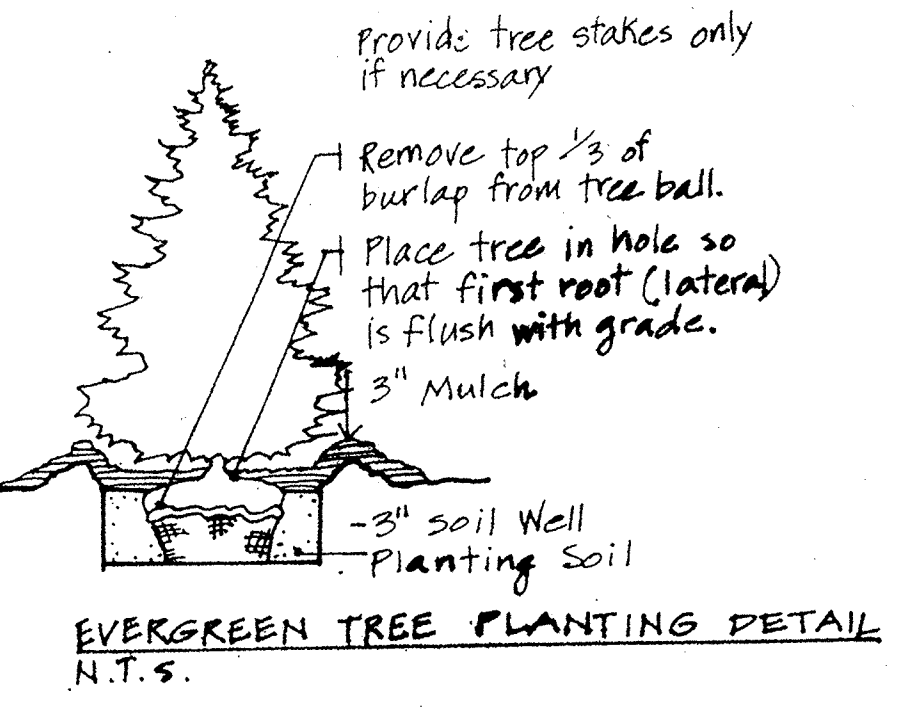 Provide tree stakes only
if necessary
Remove top 1/3 of
burlap from tree ball.
Place tree in hole so
that first root (lateral)
is flush with grade.
3" Mulch
-3" Soil Well
Planting Soil
EVERGREEN TREE PLANTING DETAIL
N.T.S.